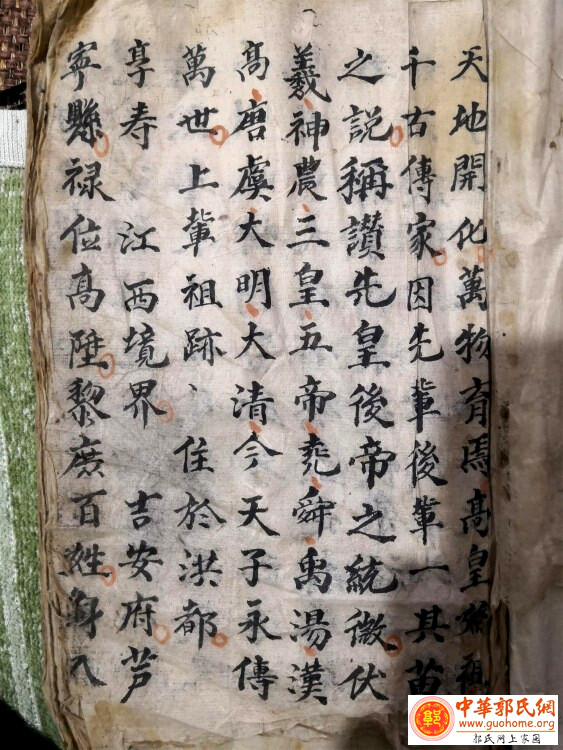 天地開化萬物育焉高皇始祖
千古傳家因先輩後輩一其苗
之説稱讃先皇後帝之統徽伏
羲神農三皇五帝堯舜禹湯漢
高唐虞大明大清今天子永傳
萬世上輩祖跡、住於洪都
享寿 江西境界 吉安府芦
寜縣禄位高陞黎庶百姓身入
中華郭氏網
www.guohome.org
郭氏网上家园